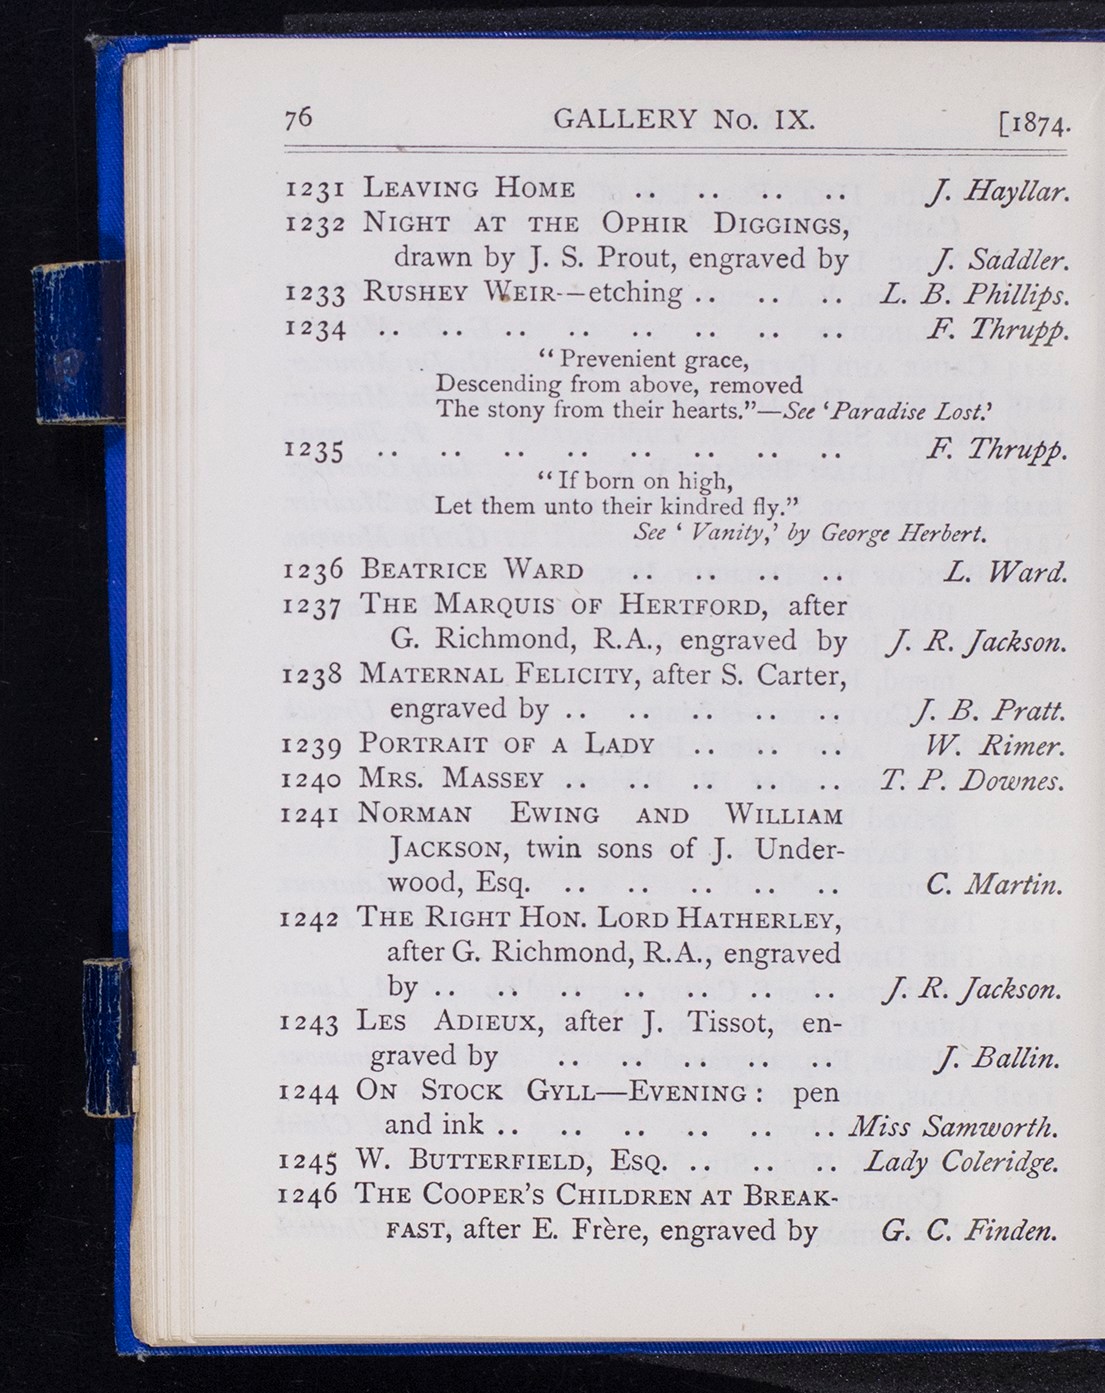 76 GALLERY No. IX. [1874.
1231 LEAVING HOME .. .. .. .. J. Hayllar.
1232 NIGHT AT THE OPHIR DIGGINGS,
drawn by J. S. Prout, engraved by J. Saddler.
1233 RUSHEY WEIR--—etching .. .. .. L. B. Phillips.
1234 .. .. .. .. .. .. .. .. F. Thrupp.
“Prevenient grace,
Descending from above, removed
The stony from their hearts.”—See ‘Paradise Lost.’
1235 .. .. .. .. .. .. .. .. F. Thrupp.
“If born on high,
Let them unto their kindred fly.”
See ‘Vanity,’ by George Herbert.
1236 BEATRICE WARD .. .. .. .. L. Ward.
1237 THE MARQUIS OF HERTFORD, after
G. Richmond, R.A., engraved by J. R. Jackson.
1238 MATERNAL FELICITY, after S. Carter,
engraved by .. .. .. .. .. J. B. Pratt.
1239 PORTRAIT OF A LADY .. .. .. W. Rimer.
1240 MRS. MASSEY .. .. .. .. .. T. P. Downes.
1241 NORMAN EWING AND WILLIAM
JACKSON, twin sons of J. Under-
wood, Esq. .. .. .. .. .. C. Martin.
1242 THE RIGHT HON. LORD HATHERLEY,
after G. Richmond, R.A., engraved
by .. .. .. .. .. .. .. J. R. Jackson.
1243 LES ADIEUX, after J. Tissot, en-
graved by .. .. .. .. .. J. Ballin.
1244 ON STOCK GYLL—EVENING: pen
and ink .. .. .. .. .. .. Miss Samworth.
1245 W. BUTTERFIELD, ESQ. .. .. .. Lady Coleridge.
1246 THE COOPER'S CHILDREN AT BREAK-
FAST, after E. Frère, engraved by G. C. Finden.